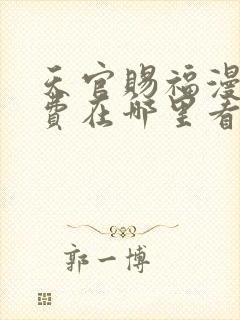 天官赐福漫
费在哪里看
郭一博